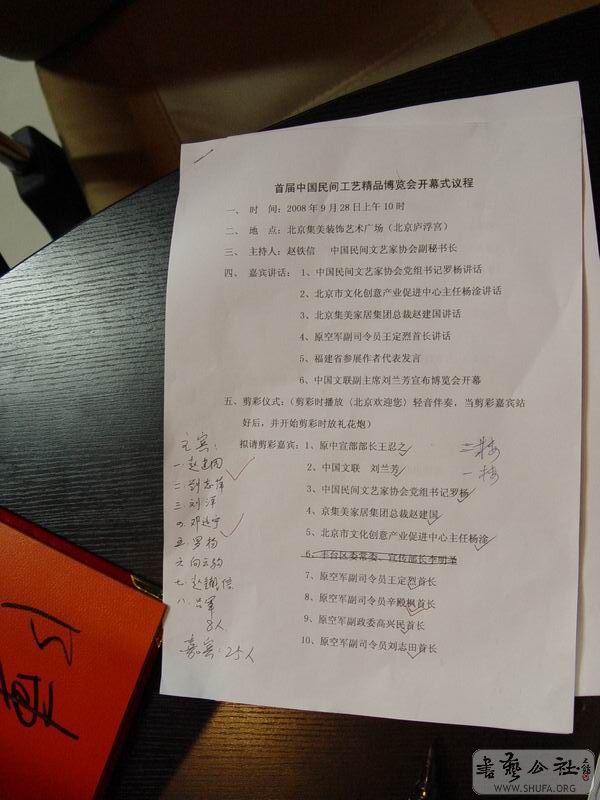 首届中国民间工艺精品博览会开幕式议程
一、 时　间：2008年9月28日上午10时
二、 地　点：北京集美装饰艺术广场（北京庐浮宫）
三、 主持人：赵铁信　中国民间文艺家协会副秘书长
四、 嘉宾讲话：1、中国民间文艺家协会党组书记罗杨讲话
2、北京市文化创意产业促进中心主任杨淦讲话
3、北京集美家居集团总裁赵建国讲话
4、原空军副司令员王定烈首长讲话
5、福建省参展作者代表发言
6、中国文联副主席刘兰芳宣布博览会开幕
五、剪彩仪式：（剪彩时播放〈北京欢迎您〉轻音伴奏，当剪彩嘉宾站
好后，并开始剪彩时放礼花炮）
拟请剪彩嘉宾：1、原中宣部部长王忍之
2、中国文联　刘兰芳
3、中国民间文艺家协会党组书记罗杨
4、京集美家居集团总裁赵建国
5、北京市文化创意产业促进中心主任杨淦
6、丰台区委常委、宣传部长李明圣
7、原空军副司令员王定烈首长
8、原空军副司令员辛殿枫首长
9、原空军副政委高兴民首长
10、原空军副司令员刘志田首长
二楼
一楼
主宾：
一、赵建国
二、刘志萍
三、刘洋
四、邓远宁
五、罗杨
六、向云驹
七、赵铁信
八、吕军
8人
嘉宾：25人
書藝公社
WWW.SHUFA.ORG